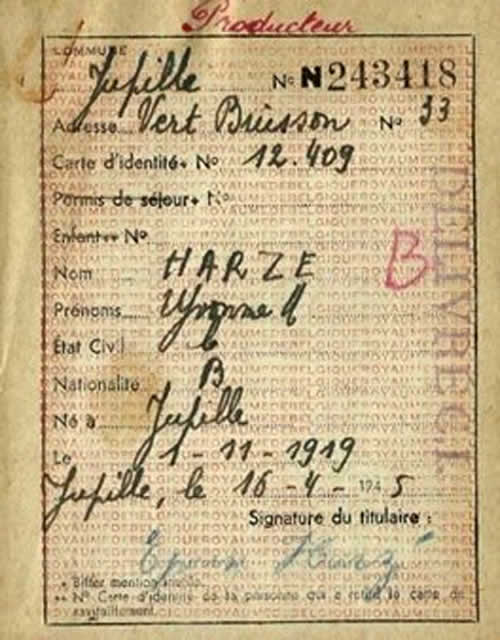 Producteur
COMMUNE
Jupille N° N243418
Adresse Vert Buisson N° 33
Carte d'identité* N° 12.409
Permis de séjour* N°
Enfant** N°
Nom HARZE
Prénoms Yvonne
B
État Civil C
Nationalité B
Né à Jupille
Le 1-11-1919
Jupille, le 16-4-1945
Signature du titulaire :
* Biffer mention inutile.
** N° Carte d'identité de la personne qui a retiré la carte de
ravitaillement.
DELIVRE C.I.